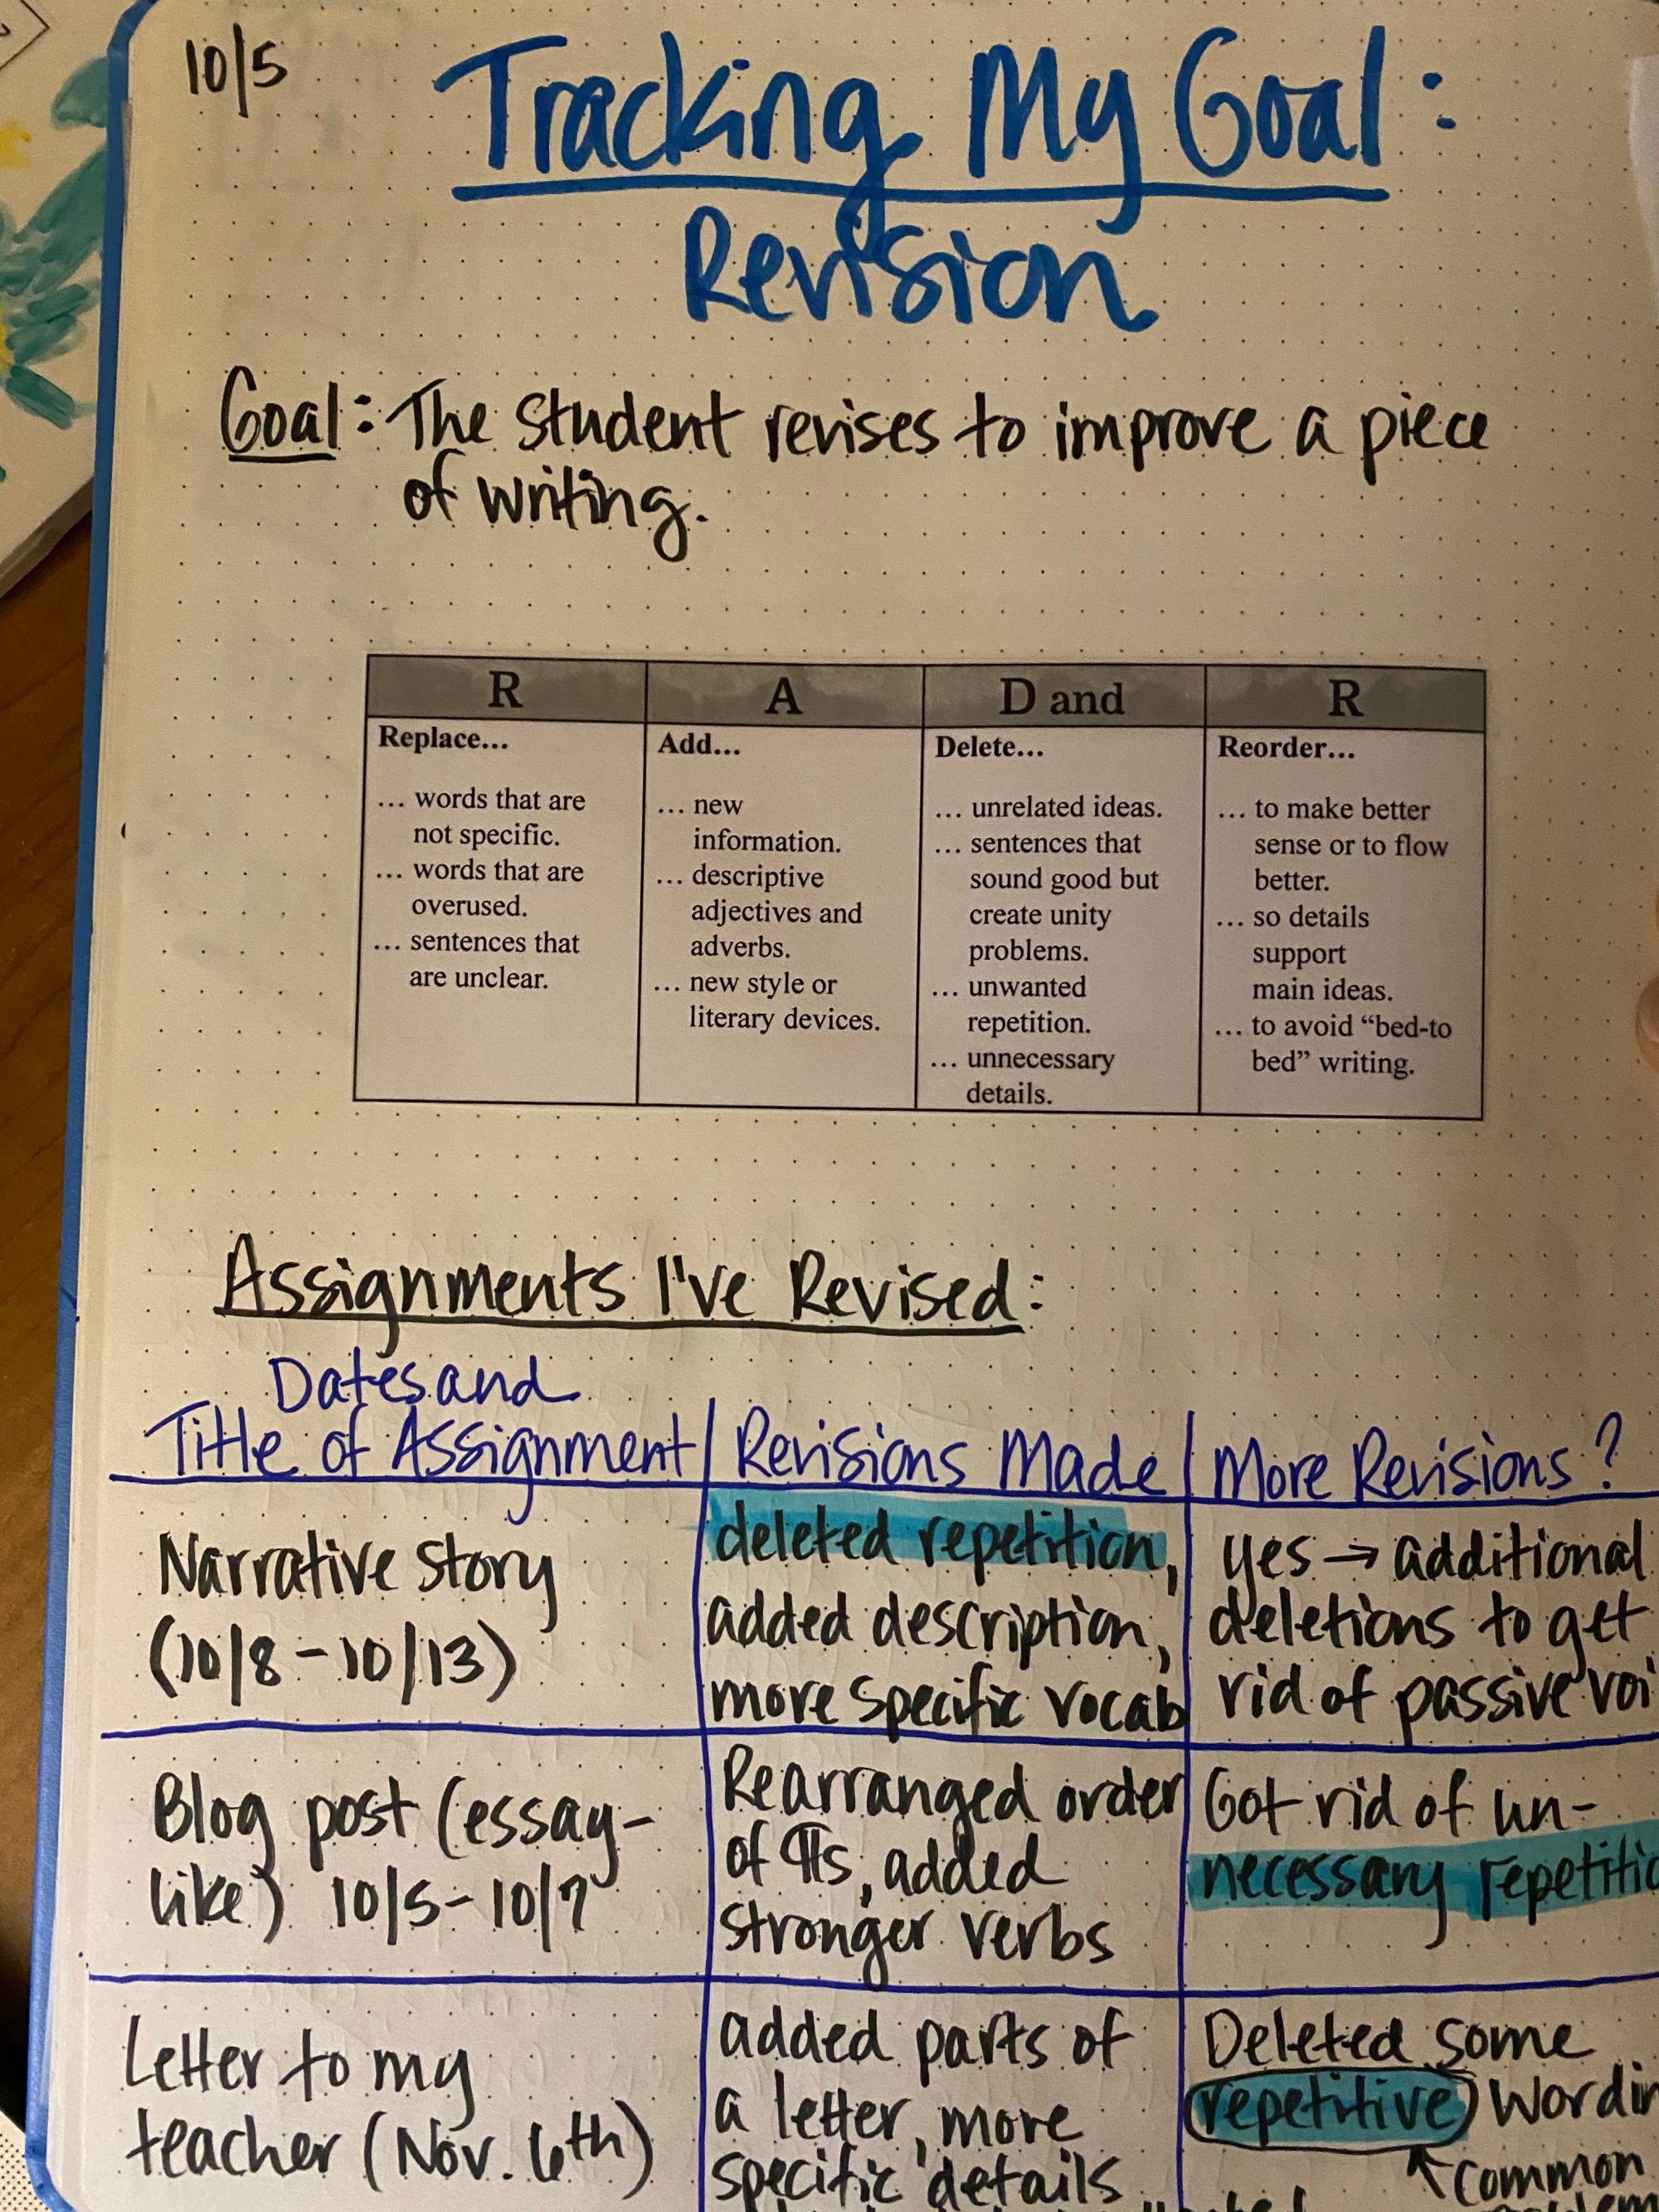 10/5
Tracking My Goal:
Revision
Goal: The student revises to improve a piece
of writing.
R
A
D and
R
Replace...
... words that are
not specific.
... words that are
overused.
... sentences that
are unclear.
Add...
... new
information.
... descriptive
adjectives and
adverbs.
... new style or
literary devices.
Delete...
... unrelated ideas.
... sentences that
sound good but
create unity
problems.
... unwanted
repetition.
... unnecessary
details.
Reorder...
... to make better
sense or to flow
better.
... so details
support
main ideas.
... to avoid “bed-to
bed” writing.
Assignments I've Revised:
Dates and
Title of Assignment
Revisions Made
More Revisions?
Narrative Story
(10/8 - 10/13)
deleted repetition,
added description,
more specific vocab
yes → additional
deletions to get
rid of passive voi
Blog post (essay-
like) 10/5 - 10/7
Rearranged order
of ¶s, added
stronger verbs
Got rid of un-
necessary repetitio
Letter to my
teacher (Nov. 6th)
added parts of
a letter, more
specific details
Deleted some
repetitive wordin
common